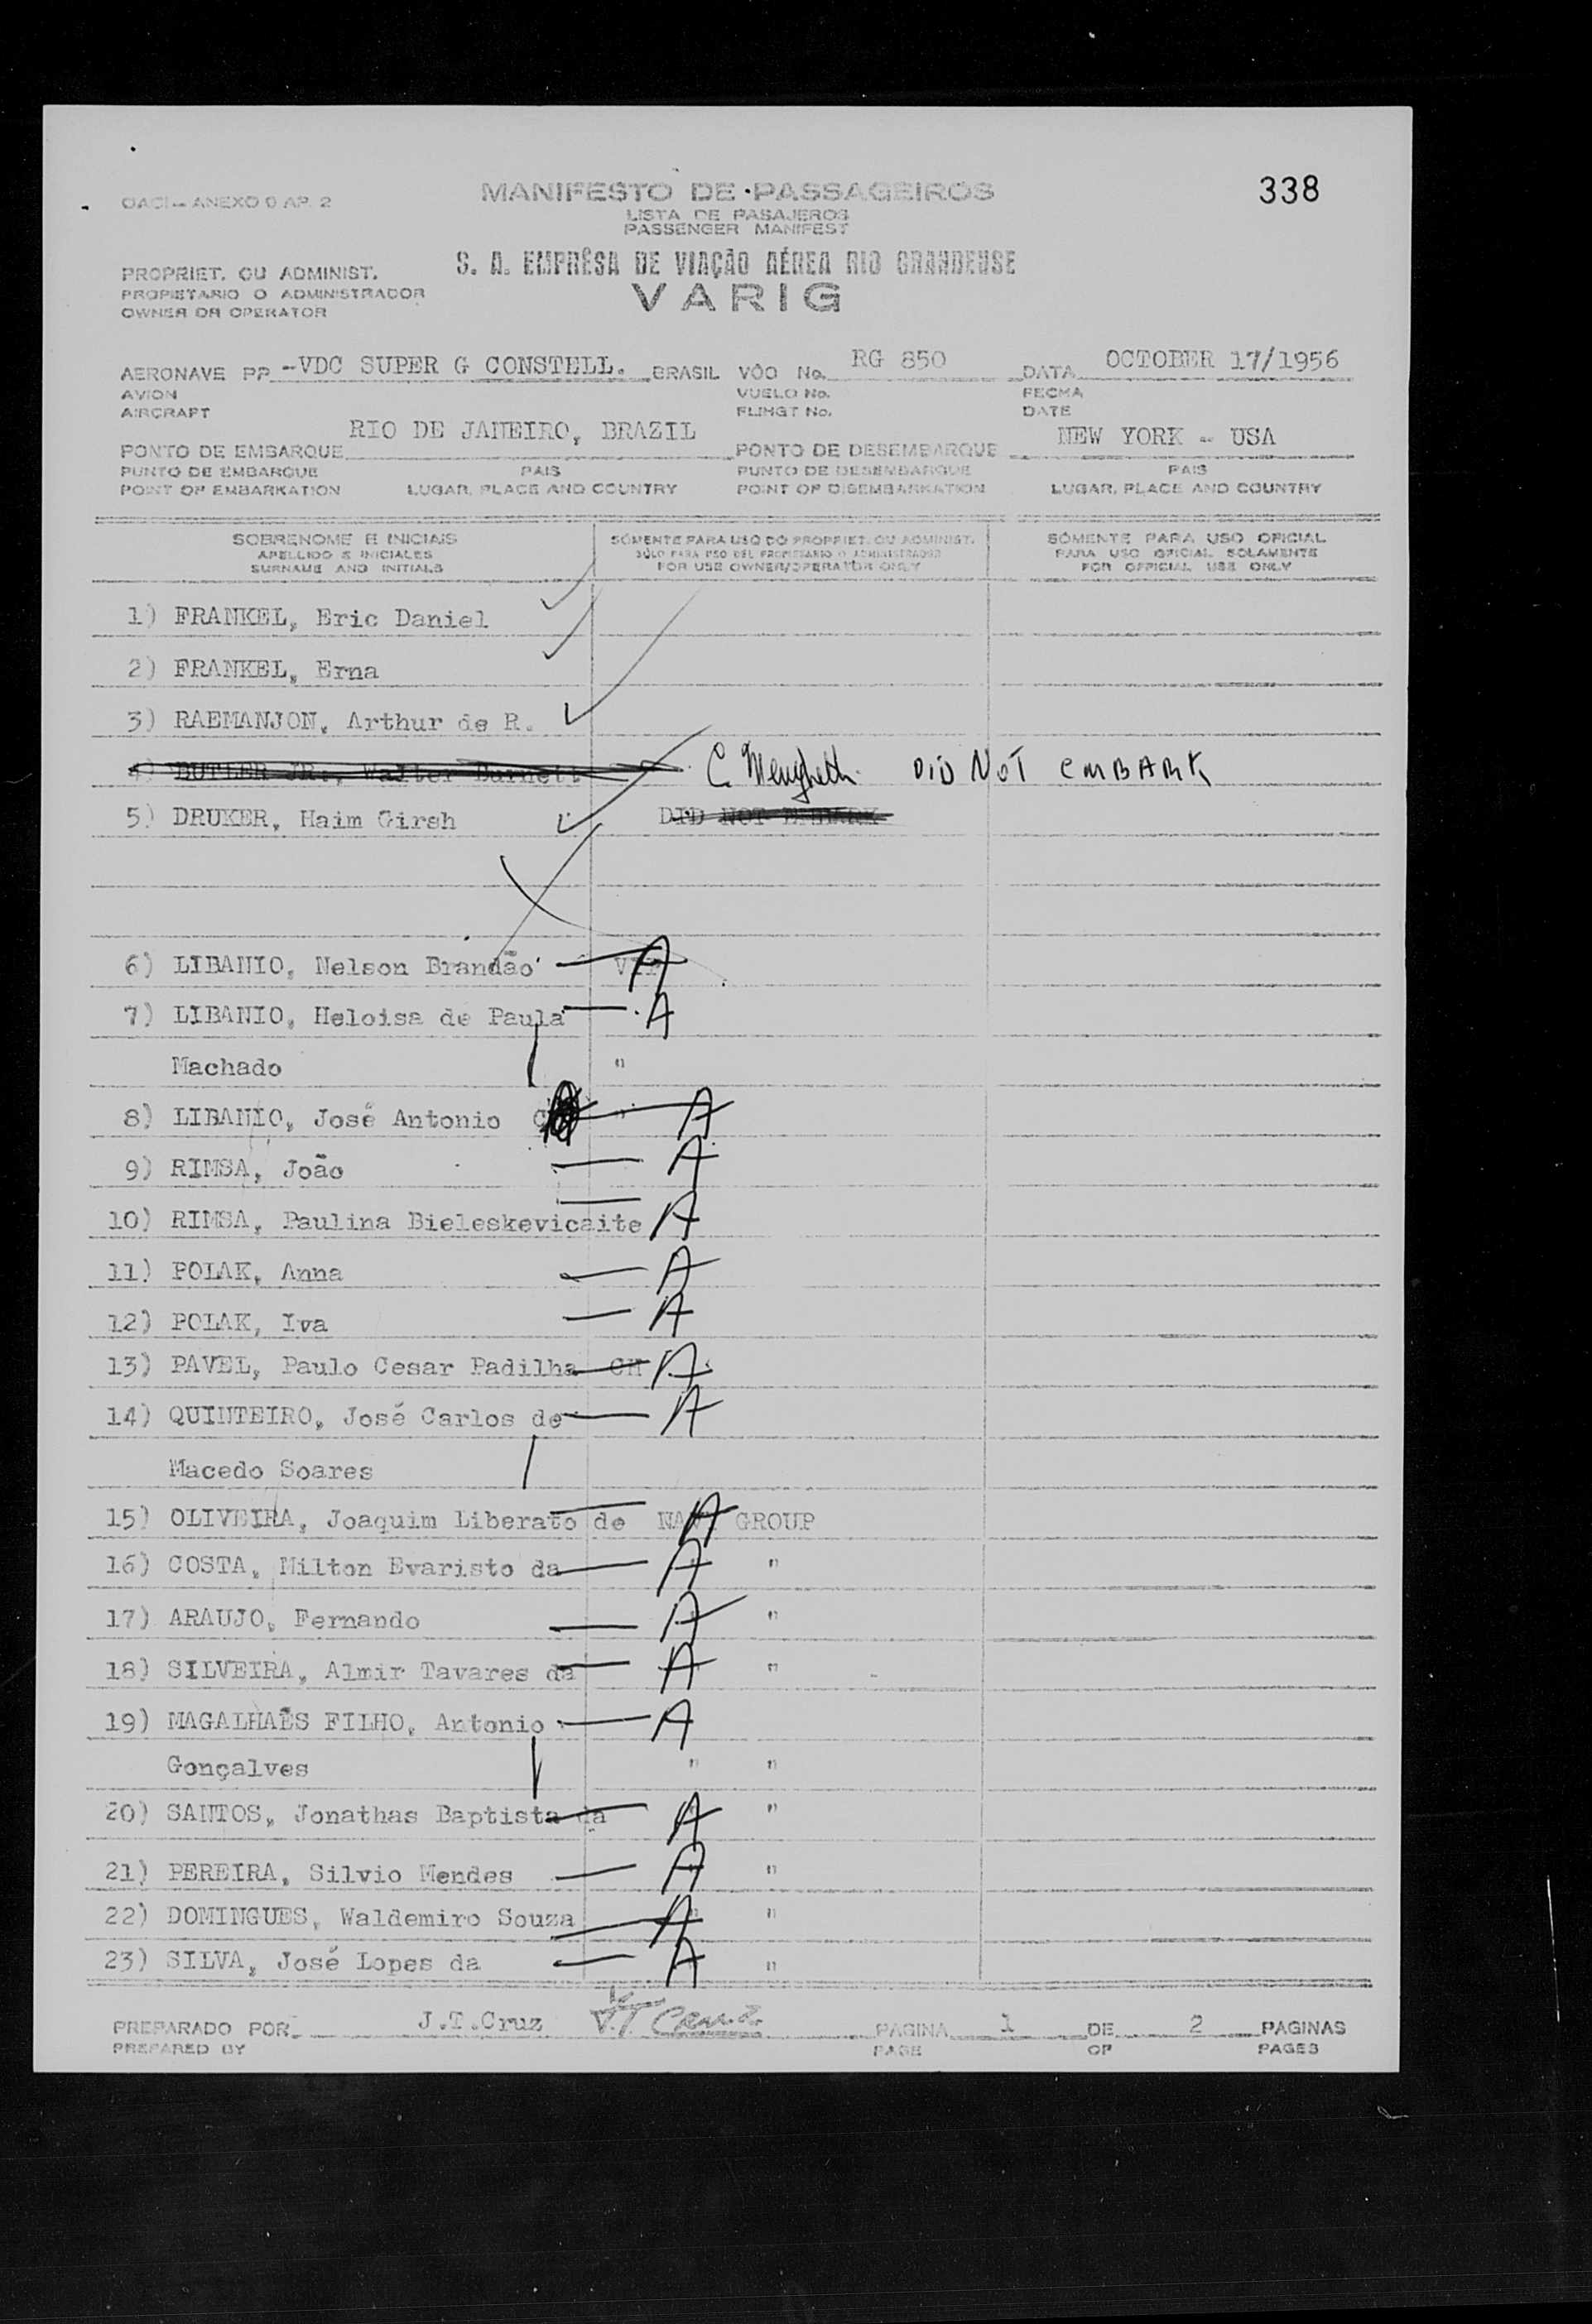 338
OACI - ANEXO 9 AP. 2
MANIFESTO DE PASSAGEIROS
LISTA DE PASAJEROS
PASSENGER MANIFEST
S. A. EMPRÊSA DE VIAÇÃO AÉREA RIO GRANDENSE
VARIG
PROPRIET. OU ADMINIST.
PROPIETARIO O ADMINISTRADOR
OWNER OR OPERATOR
AERONAVE PP -VDC SUPER G CONSTELL. BRASIL VÔO No. RG 850 DATA OCTOBER 17/1956
AVION VUELO No. FECHA
AIRCRAFT FLIHGT No. DATE
PONTO DE EMBARQUE RIO DE JANEIRO, BRAZIL PONTO DE DESEMBARQUE NEW YORK - USA
PUNTO DE EMBARQUE PAIS PUNTO DE DESEMBARQUE PAIS
POINT OF EMBARKATION LUGAR, PLACE AND COUNTRY POINT OF DISEMBARKATION LUGAR, PLACE AND COUNTRY
SOBRENOME E INICIAIS SÓMENTE PARA USO DO PROPRIET. OU ADMINIST. SÓMENTE PARA USO OFICIAL
APELLIDO E INICIALES SÓLO PARA USO DEL PROPIETARIO O ADMINISTRADOR PARA USO OFICIAL SOLAMENTE
SURNAME AND INITIALS FOR USE OWNER/OPERATOR ONLY FOR OFFICIAL USE ONLY
1) FRANKEL, Eric Daniel
2) FRANKEL, Erna
3) RAEMANJON, Arthur de R.
4) BUTLER JR., Walter Burnett C. DID NOT EMBARK
5) DRUKER, Haim Girsh DID NOT EMBARK
6) LIBANIO, Nelson Brandão A
7) LIBANIO, Heloisa de Paula A
Machado "
8) LIBANIO, José Antonio " A
9) RIMSA, João A
10) RIMSA, Paulina Bieleskevicaite A
11) POLAK, Anna A
12) POLAK, Iva A
13) PAVEL, Paulo Cesar Padilha CH A
14) QUINTEIRO, José Carlos de A
Macedo Soares
15) OLIVEIRA, Joaquim Liberato de A GROUP
16) COSTA, Milton Evaristo da A "
17) ARAUJO, Fernando A "
18) SILVEIRA, Almir Tavares da A "
19) MAGALHAẼS FILHO, Antonio A
Gonçalves " "
20) SANTOS, Jonathas Baptista da A "
21) PEREIRA, Silvio Mendes A "
22) DOMINGUES, Waldemiro Souza A "
23) SILVA, José Lopes da A "
PREPARADO POR J.T.Cruz PAGINA 1 DE 2 PAGINAS
PREPARED BY PAGE OF PAGES